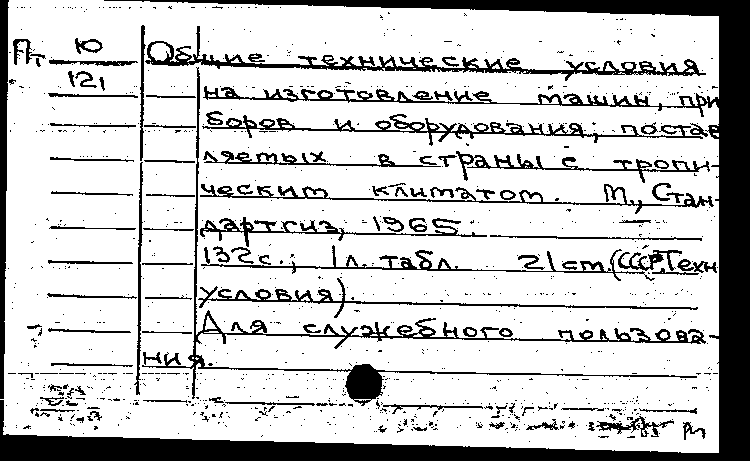 Пт Ю Общие технические условия
121 на изготовление машин, при
боров и оборудования, постав
ляемых в страны с тропи-
ческим климатом. М., Стан-
дартгиз, 1965.
132с.; 1л. табл. 21см.(СССР.Техн
условия).
Для служебного пользова-
ния.